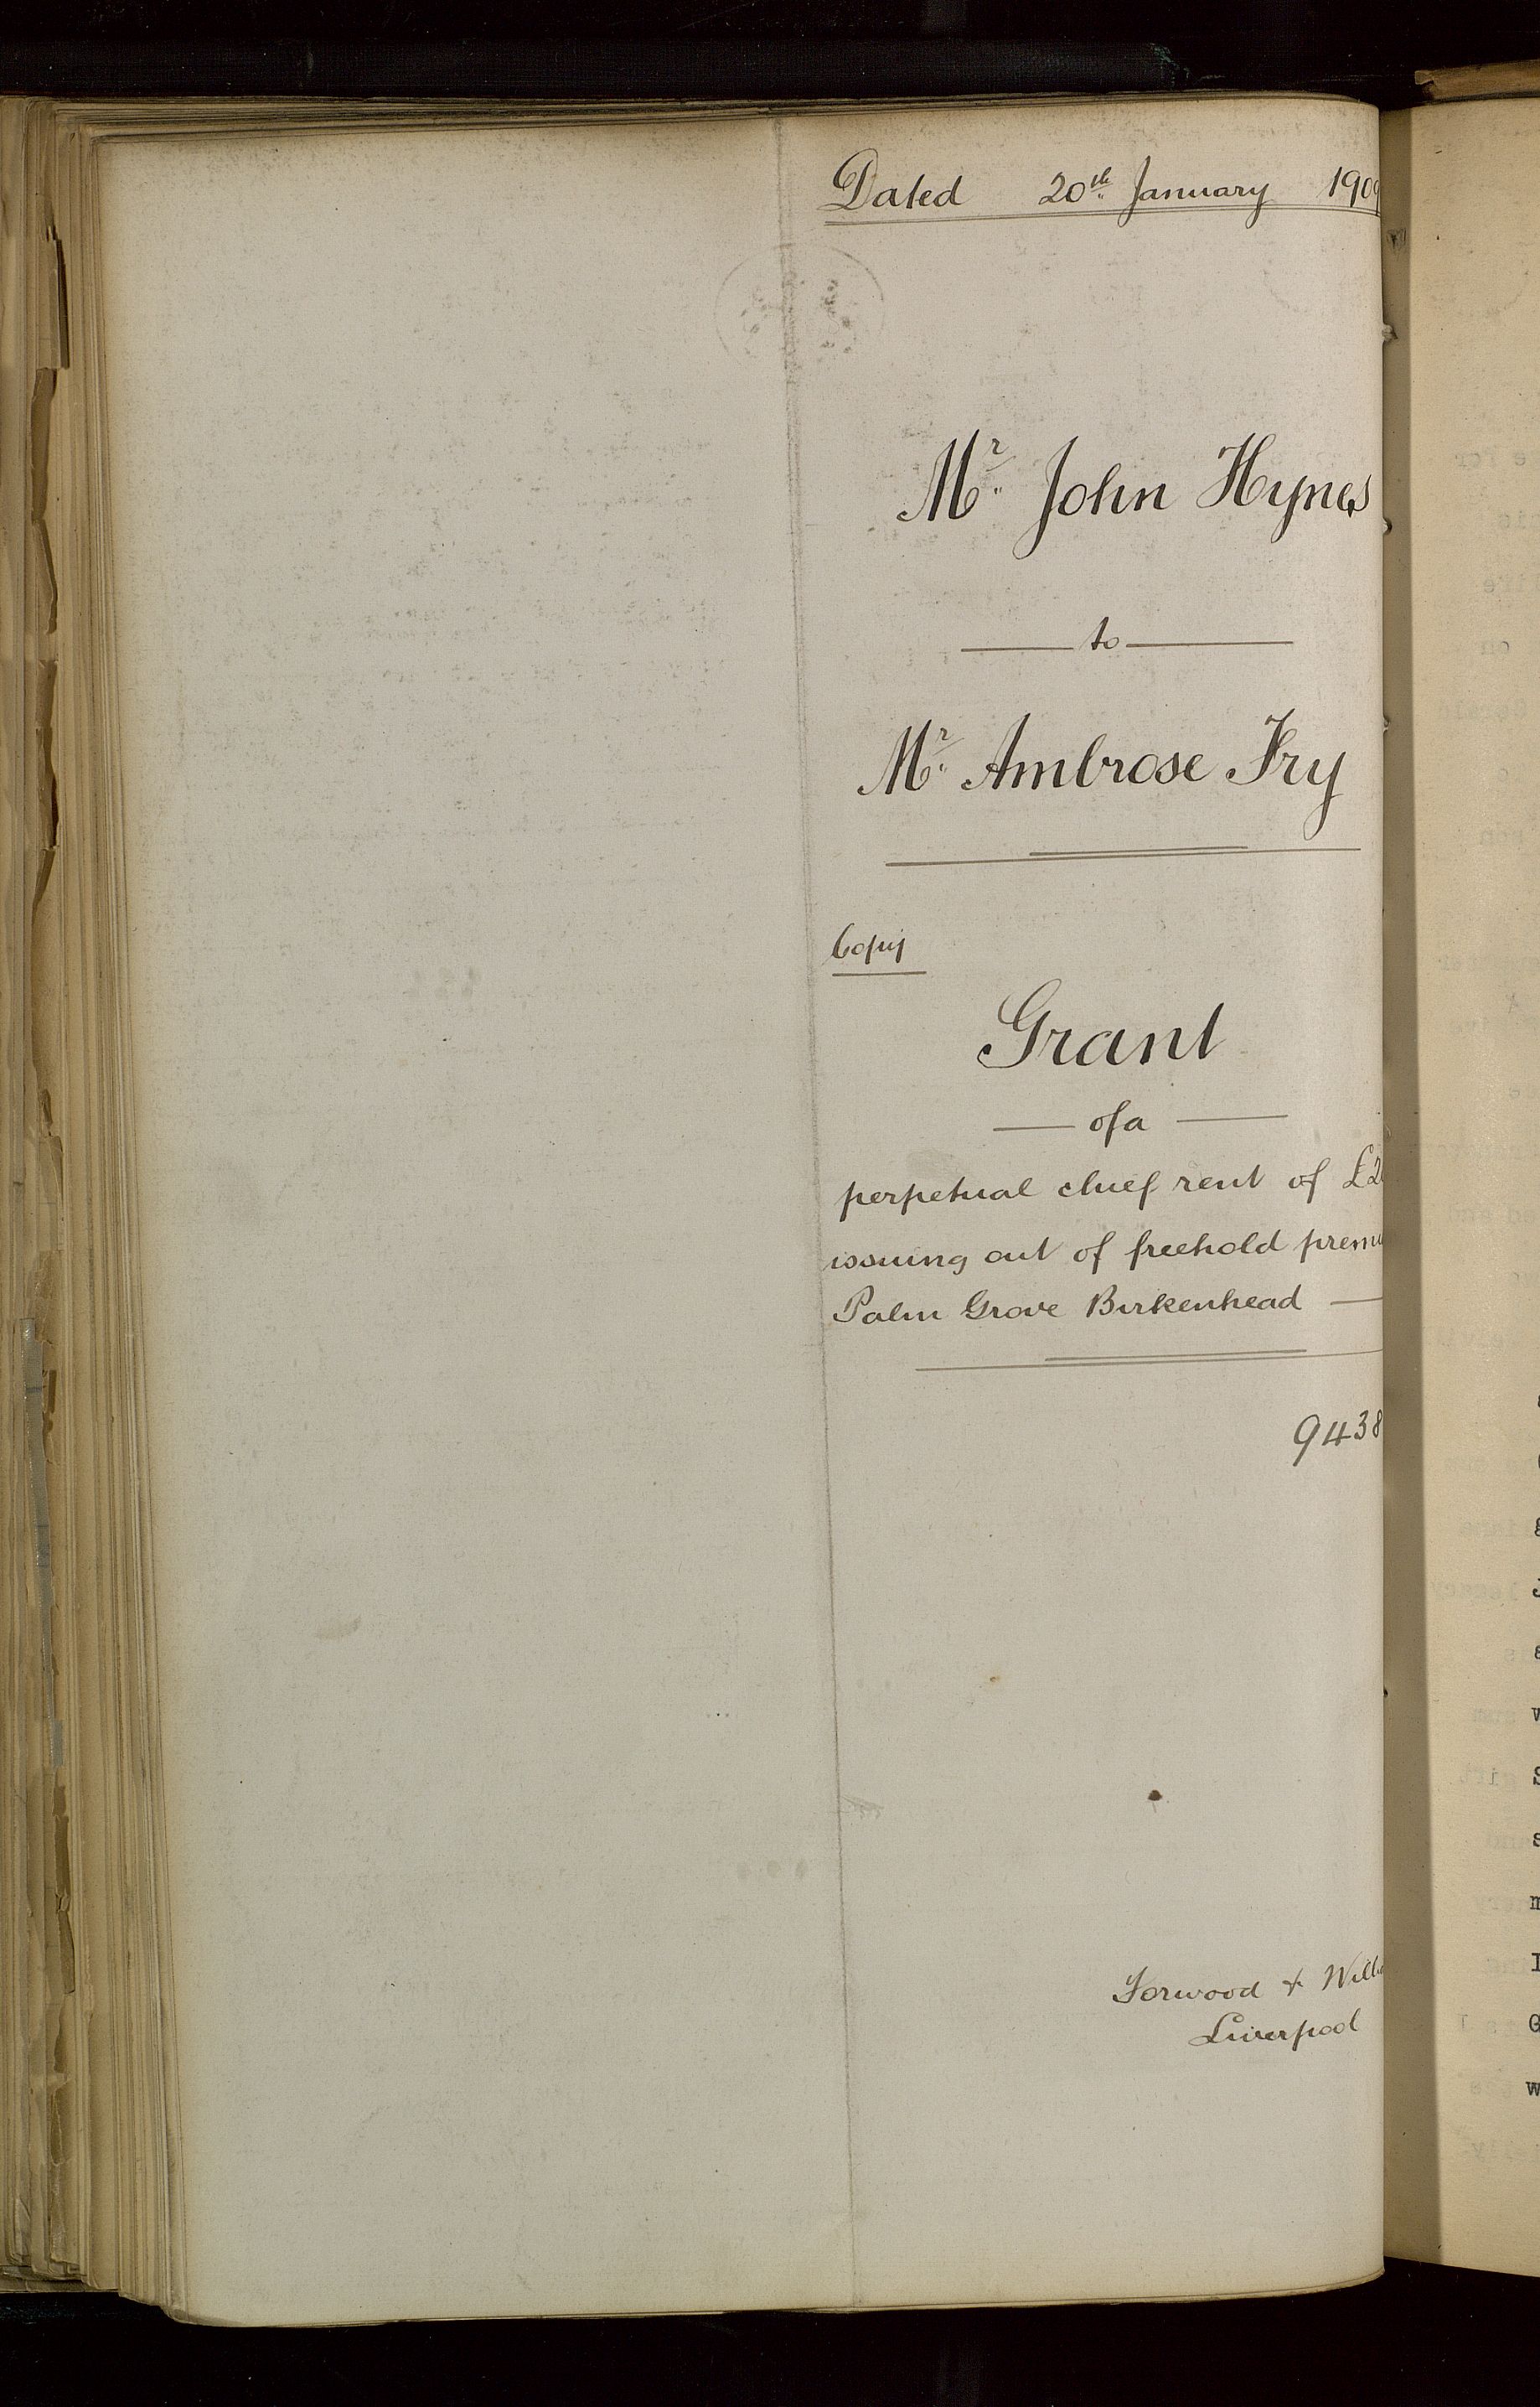 Dated 20th January 190
Mr. John Hynes
to
Mr. Ambrose Fry
Copy
Grant
of a
perpetual chief rent of £2
issuing out of freehold premi
Palm Grove Birkenhead
9438
Forwood & Will
Liverpool